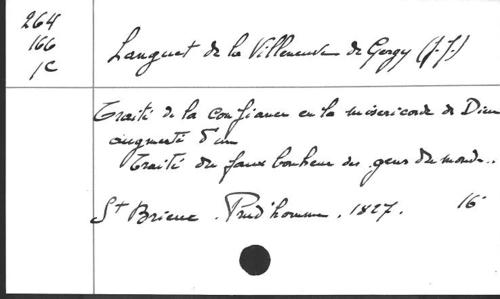 264
166
1C
Languet de la Villeneuve de Gergy (J.J.)
Traité de la confiance en la miséricorde de Dieu
augmenté d'un
traité du faux bonheur des gens du monde..
St Brieuc . Prud'homme . 1827. 16°